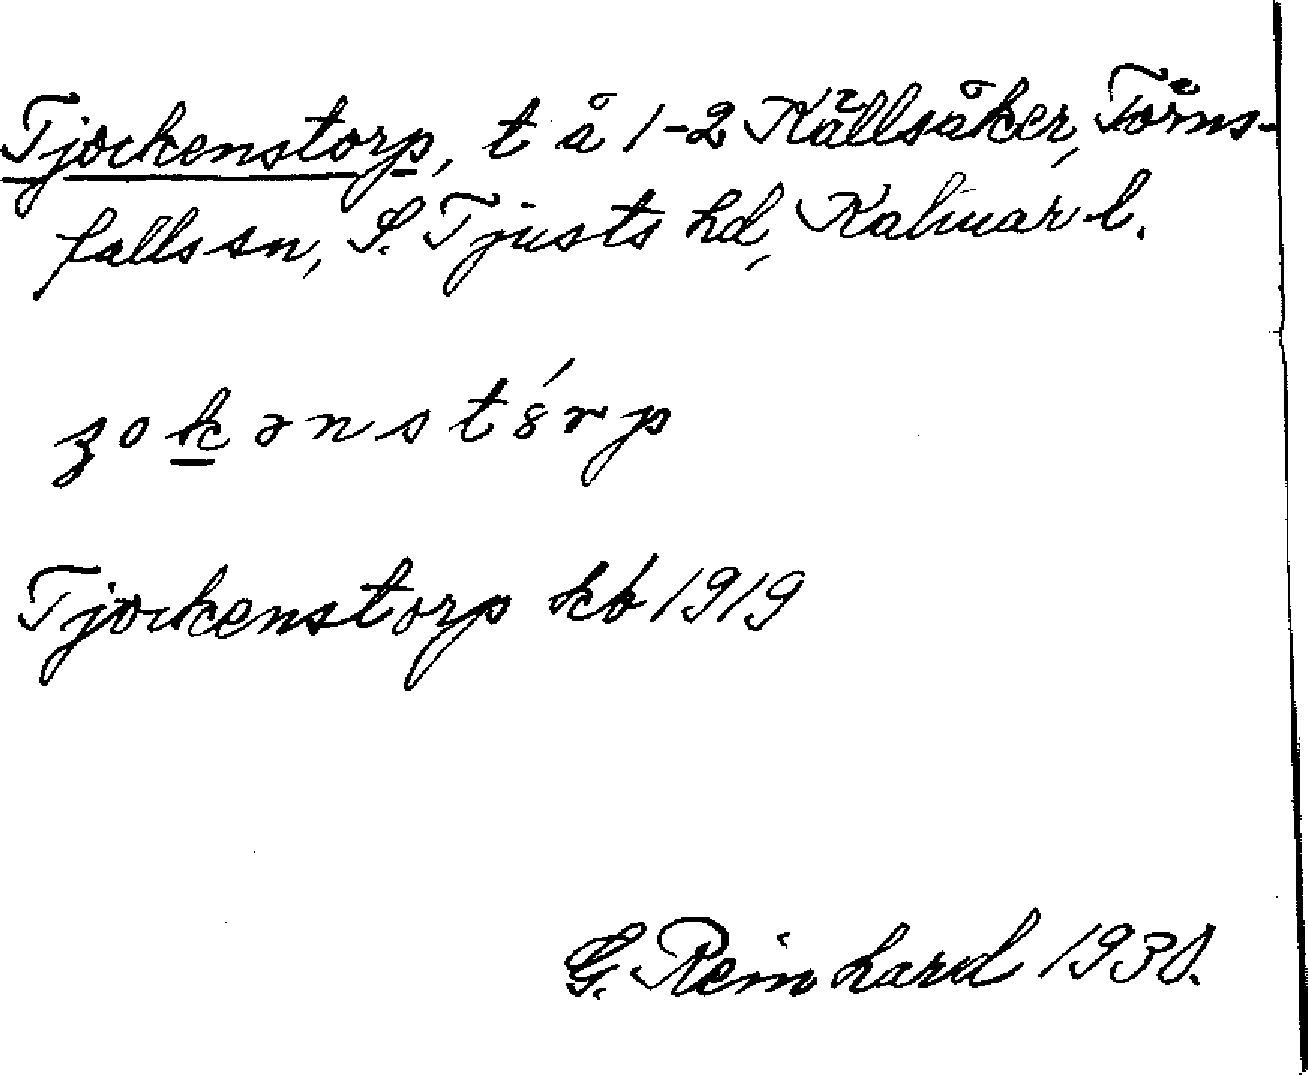 Tjockenstorp, t å 1-2 Källsåker, Törns-
falls sn, S. Tjusts hd, Kalmar l.
ʒokənstȣ́rp
Tjockenstorp kb 1919
G. Reinhard 1930.